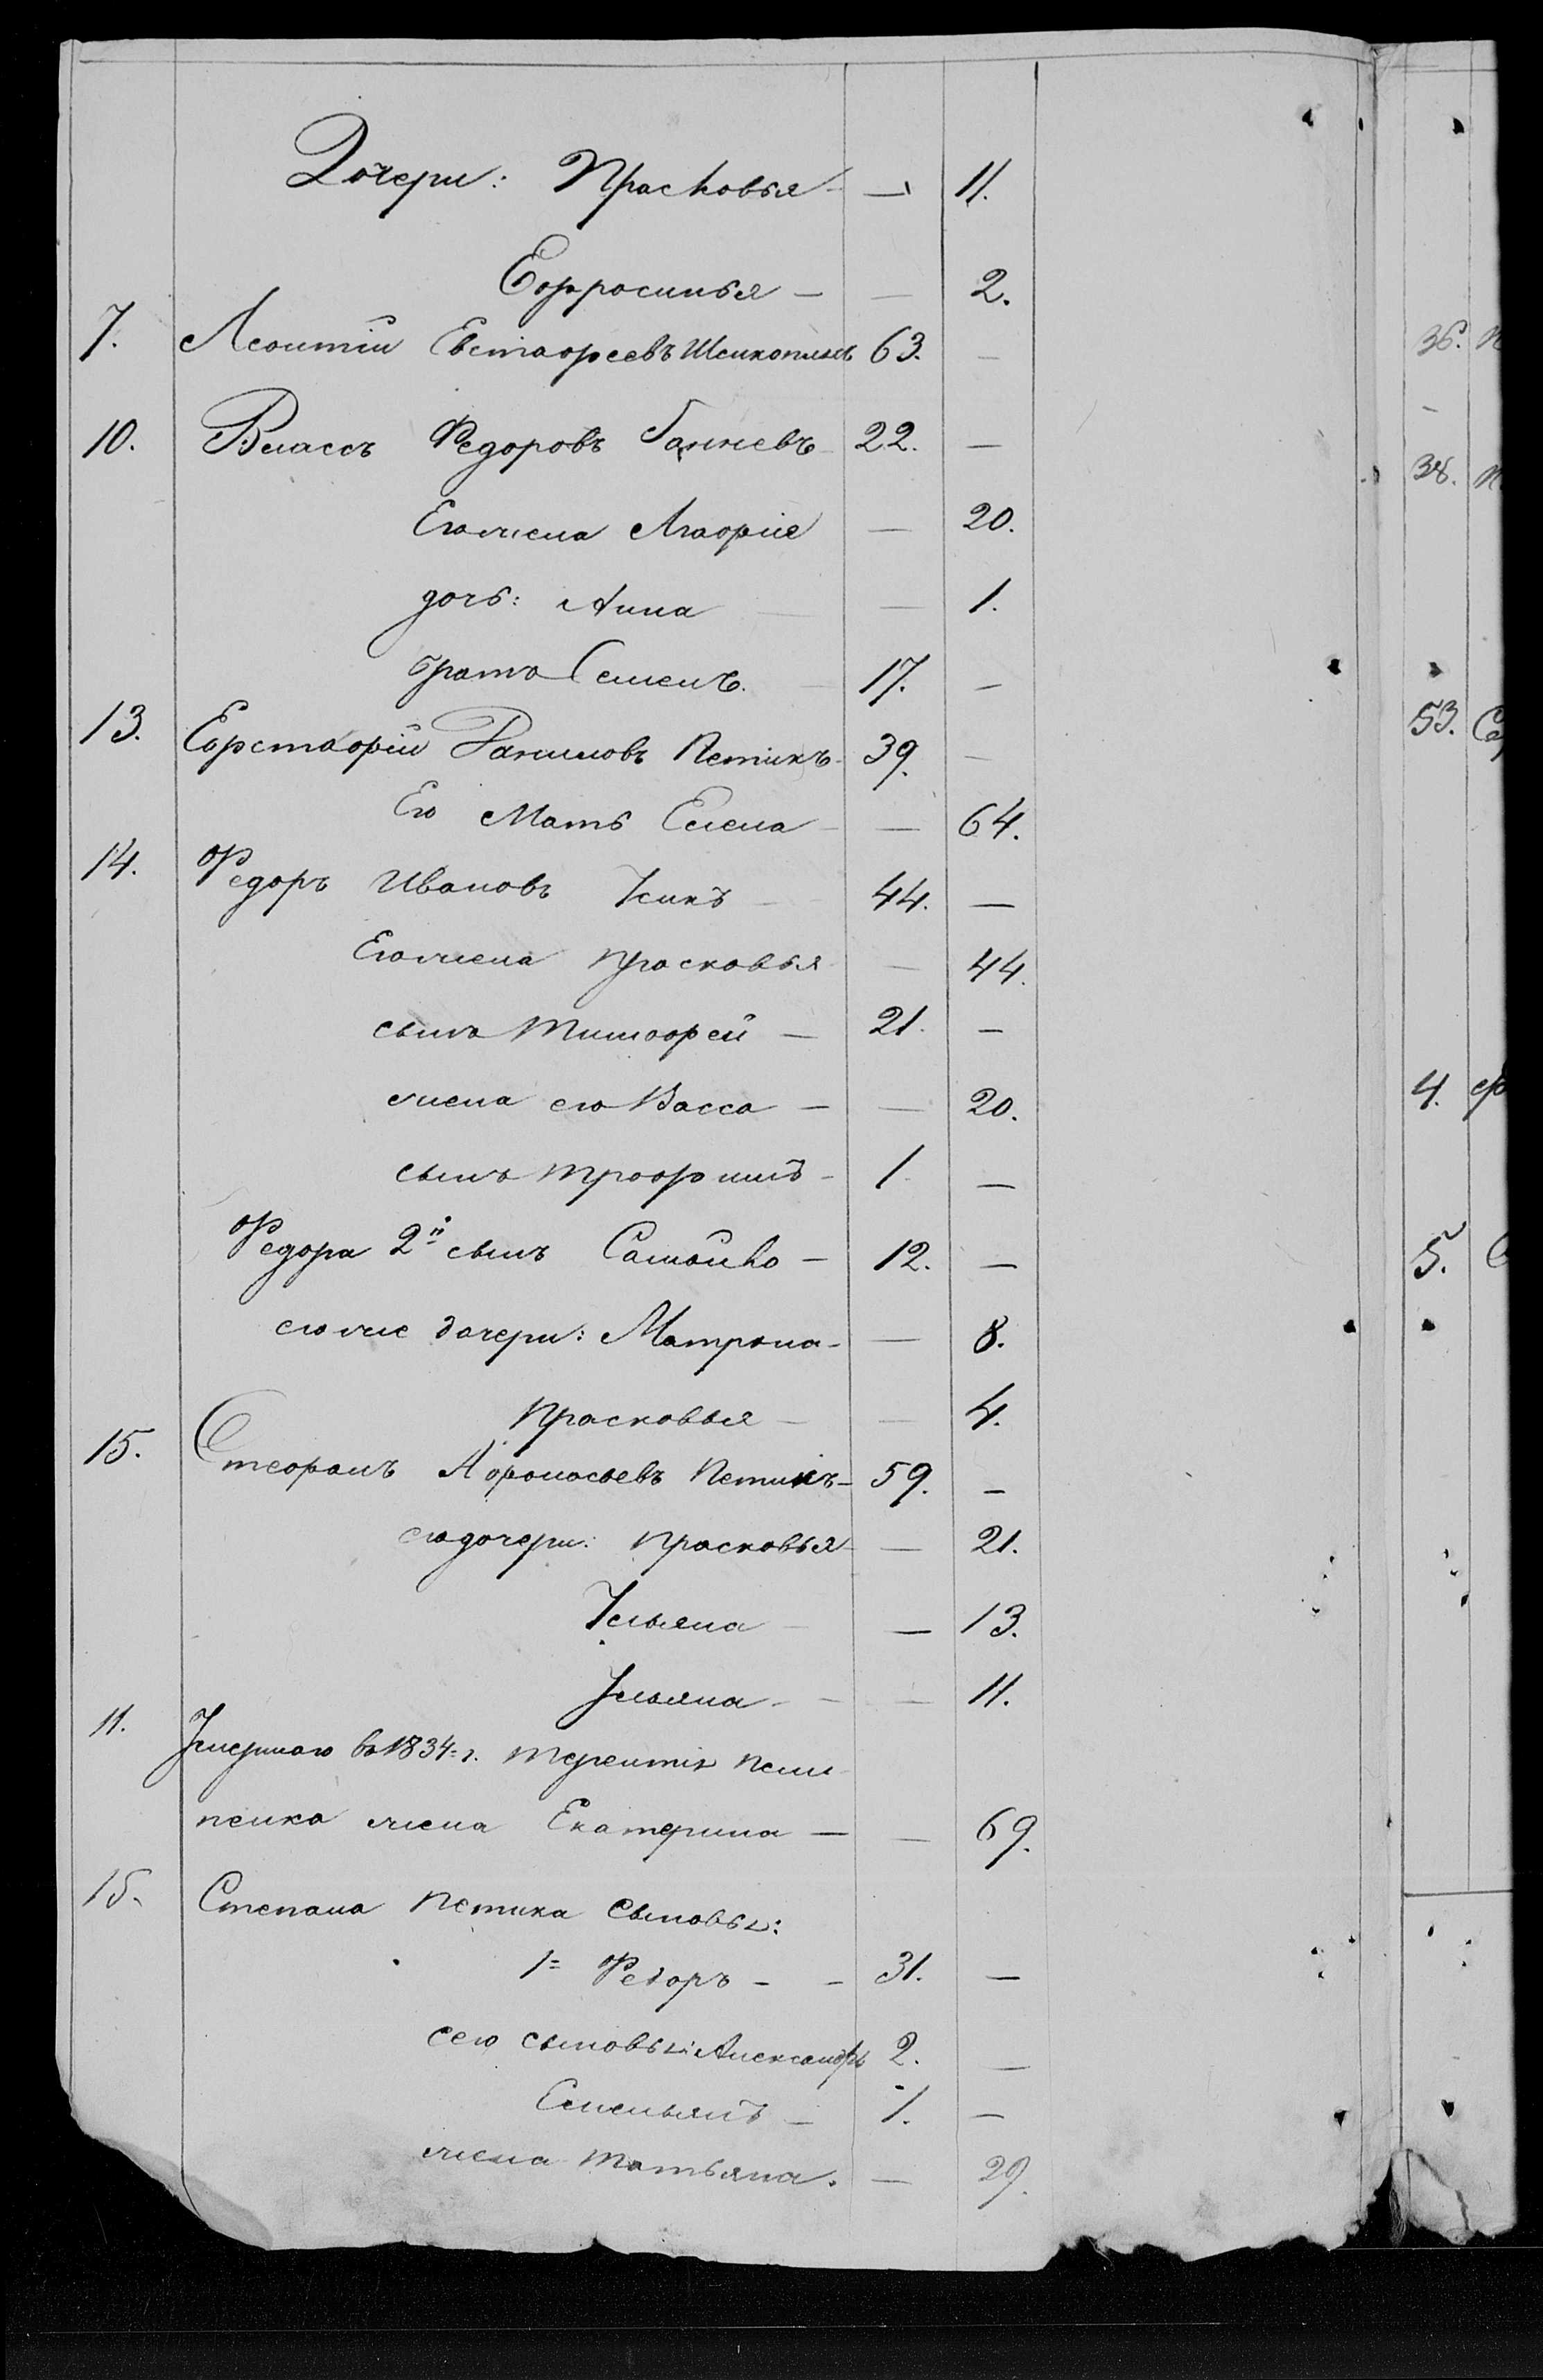 Дочери: Прасковья — — 11.
Ефросинья — — 2.
7. Леонтій Евстафеевъ 63. —
10. Власъ Федоровъ 22. —
Его жена Агафія — 20.
дочь: Анна — 1.
братъ Семенъ. 17. —
13. Евстафій Петикъ 39. —
Его Мать Елена — 64.
14. Федоръ Ивановъ Усикъ 44. —
Его жена Прасковья — 44.
сынъ Тимофей — 21. —
жена его Васса — — 20.
сынъ Трофимъ 1 —
Федора 2й сынъ Самойло — 12. —
его же дочери: Матрона — — 8.
Прасковья — — 4.
15. Стефанъ Афонасьевъ Петикъ — 59. —
его дочери: Прасковья — 21.
Ульяна — 13.
Ульяна — — 11.
11. Умершаго въ 1834 = г. Терентія
жена Екатерина — — 69.
15. Степана Петика сыновья:
1 = Федоръ — — 31. —
сего сыновья: Александръ 2. —
Емельянъ — 1. —
жена Татьяна. — 29.
36.
38.
53.
4.
5.